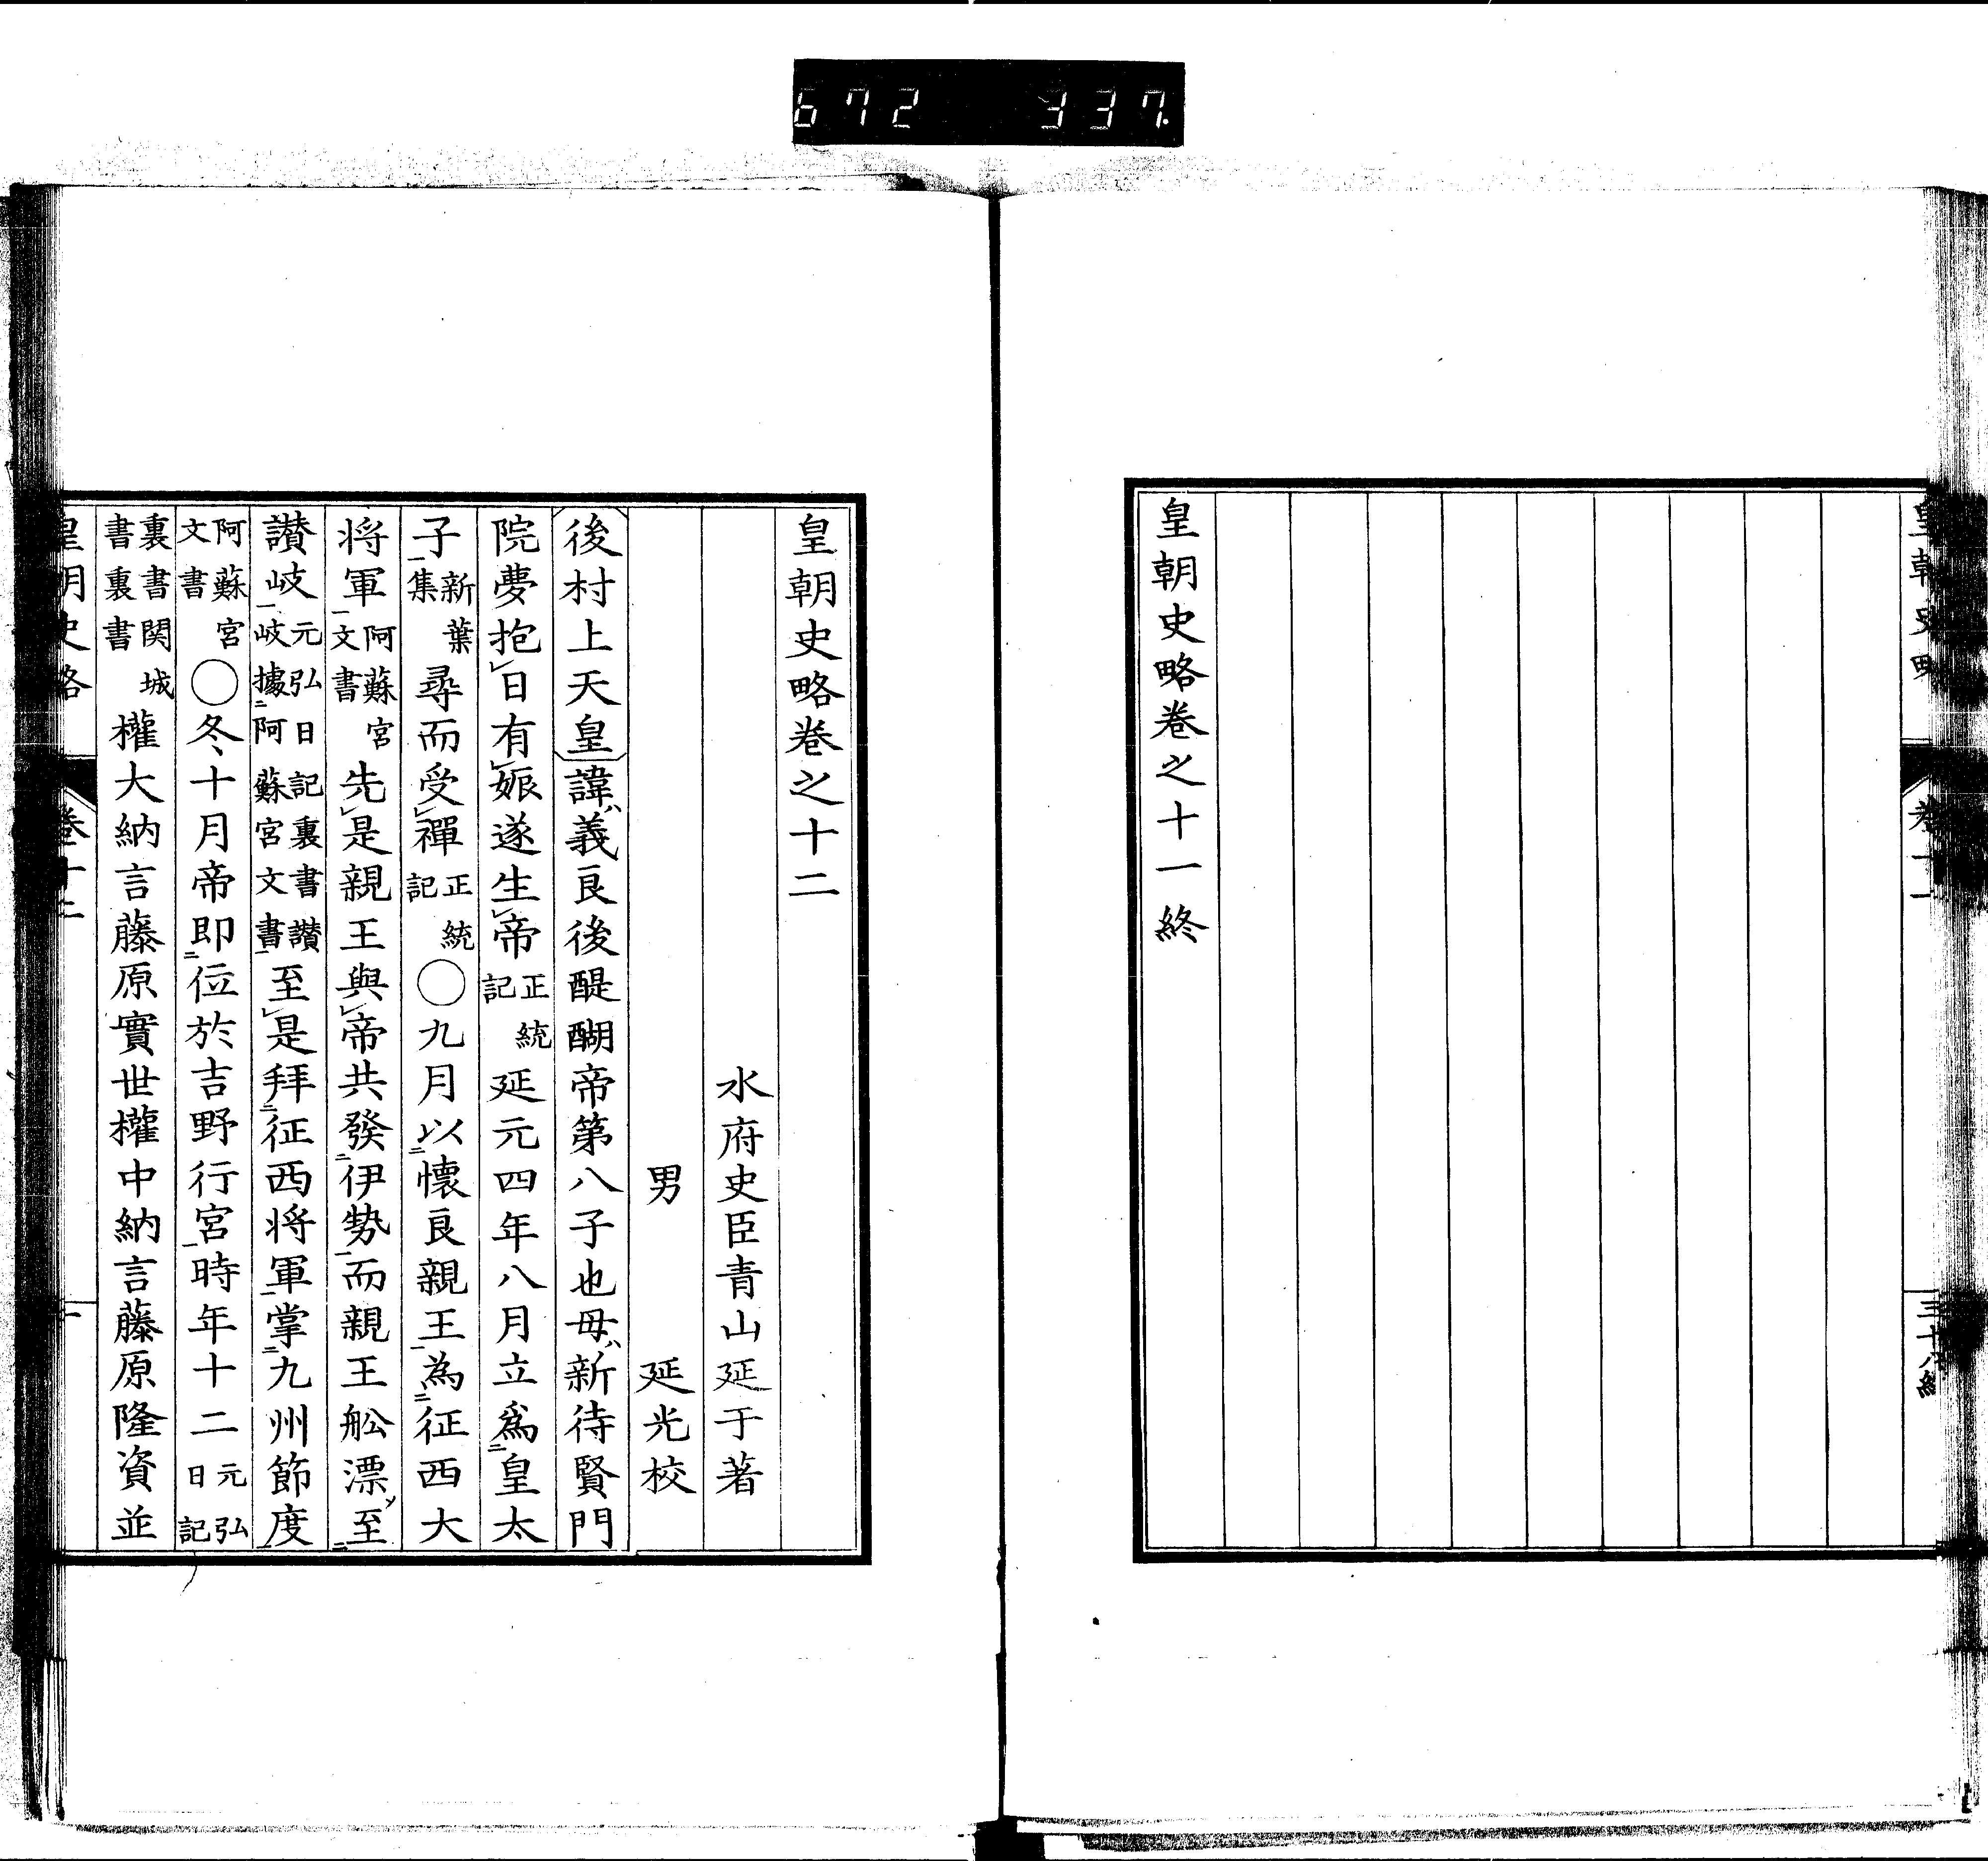 672 337.
皇朝史略 卷十一 三十八終
皇朝史略卷之十一終
皇朝史略卷之十二
水府史臣青山延于著
男 延光校
後村上天皇諱ハ義良後醍醐帝第八子也母ハ新待賢門
院夢抱㆑日有㆑娠遂生㆑帝正統記延元四年八月立為㆓皇太
子㆒新葉集尋而受㆑禪正統記〇九月以㆓懷良親王㆒為㆓征西大
将軍㆒阿蘇宮文書先㆑是親王與㆑帝共發㆓伊勢㆒而親王舩漂ソ至㆓
讃岐㆒元弘日記裏書讃岐據㆓阿蘇宮文書㆒至㆑是拜㆓征西将軍㆒掌㆓九州節度㆒
阿蘇宮文書〇冬、十月帝即㆓位於吉野行宮㆒時年十二元弘日記
裏書関城書裏書權大納言藤原實世權中納言藤原隆資並
皇朝史略 卷十二 一